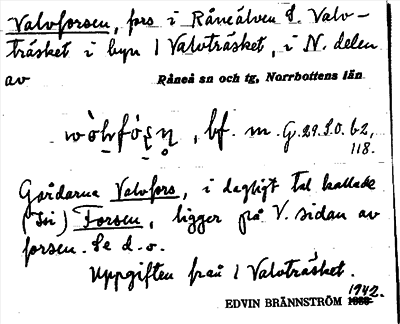 Valvforsen, fors i Råneälven S. Valv-
träsket i byn 1 Valvträsket, i N. delen
av Råneå sn och tg, Norrbottens län
, bf. m. G. 29.30. b2,
118.
Gårdarna Valvfors, i dagligt tal kallade
Forsen, ligger på V. sidan av
forsen. Se d. o.
Uppgiften från 1 Valvträsket.
1942.
EDVIN BRÄNNSTRÖM